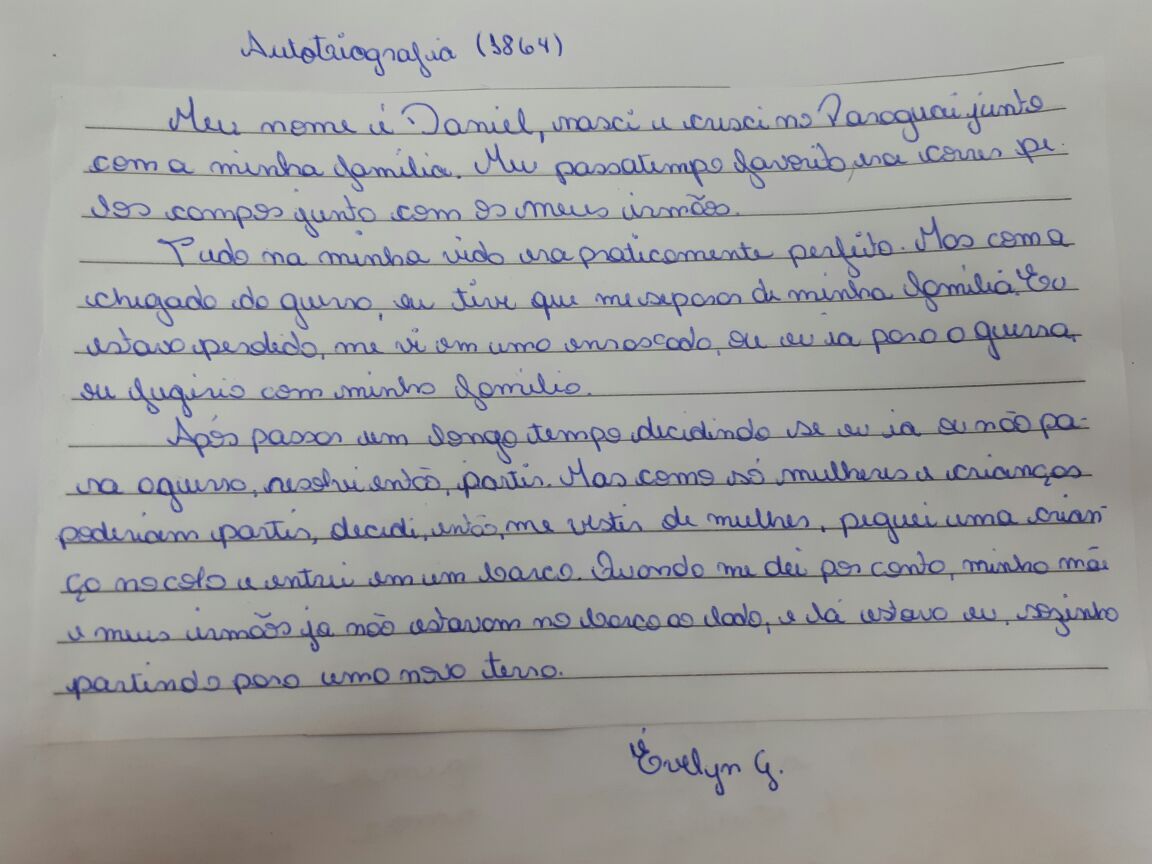 Autobiografia (1864)
Meu nome é Daniel, nasci e cresci no Paraguai junto
com a minha família. Meu passatempo favorito, era correr pe-
los campos junto com os meus irmãos.
Tudo na minha vida era praticamente perfeito. Mas com a
chegada da guerra, eu tive que me separar de minha família. Eu
estava perdido, me vi em uma enroscada, ou eu ia para a guerra,
ou fugiria com minha família.
Após passar um longo tempo decidindo se eu ia ou não pa-
ra a guerra, resolvi então, partir. Mas como só mulheres e crianças
poderiam partir, decidi, então, me vestir de mulher, peguei uma crian-
ça no colo e entrei em um barco. Quando me dei por conta, minha mãe
e meus irmãos já não estavam no barco ao lado, e lá estava eu, sozinho
partindo para uma nova terra.
Évelyn G.